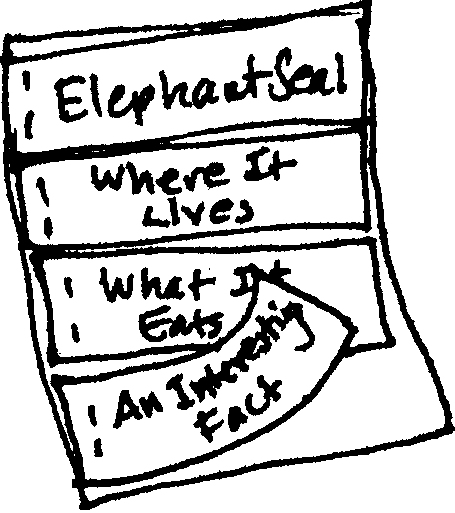 Elephant Seal
Where It
Lives
What It
Eats
An Interesting
Fact